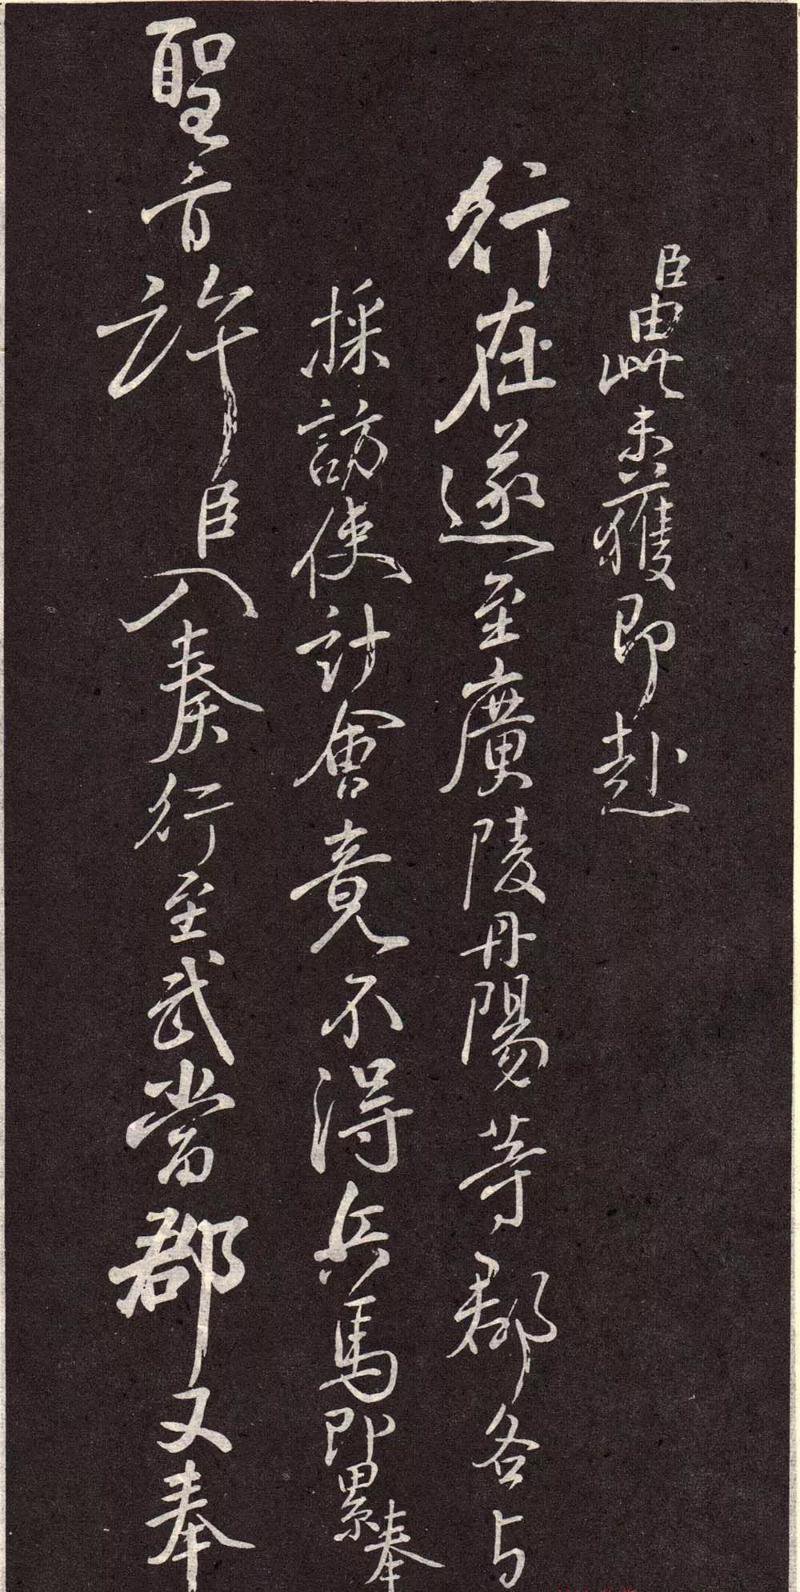 臣由此未獲即赴
行在遂至廣陵丹陽等郡各与
採訪使計會竟不得兵馬即累奉
聖旨許臣入奏行至武當郡又奉